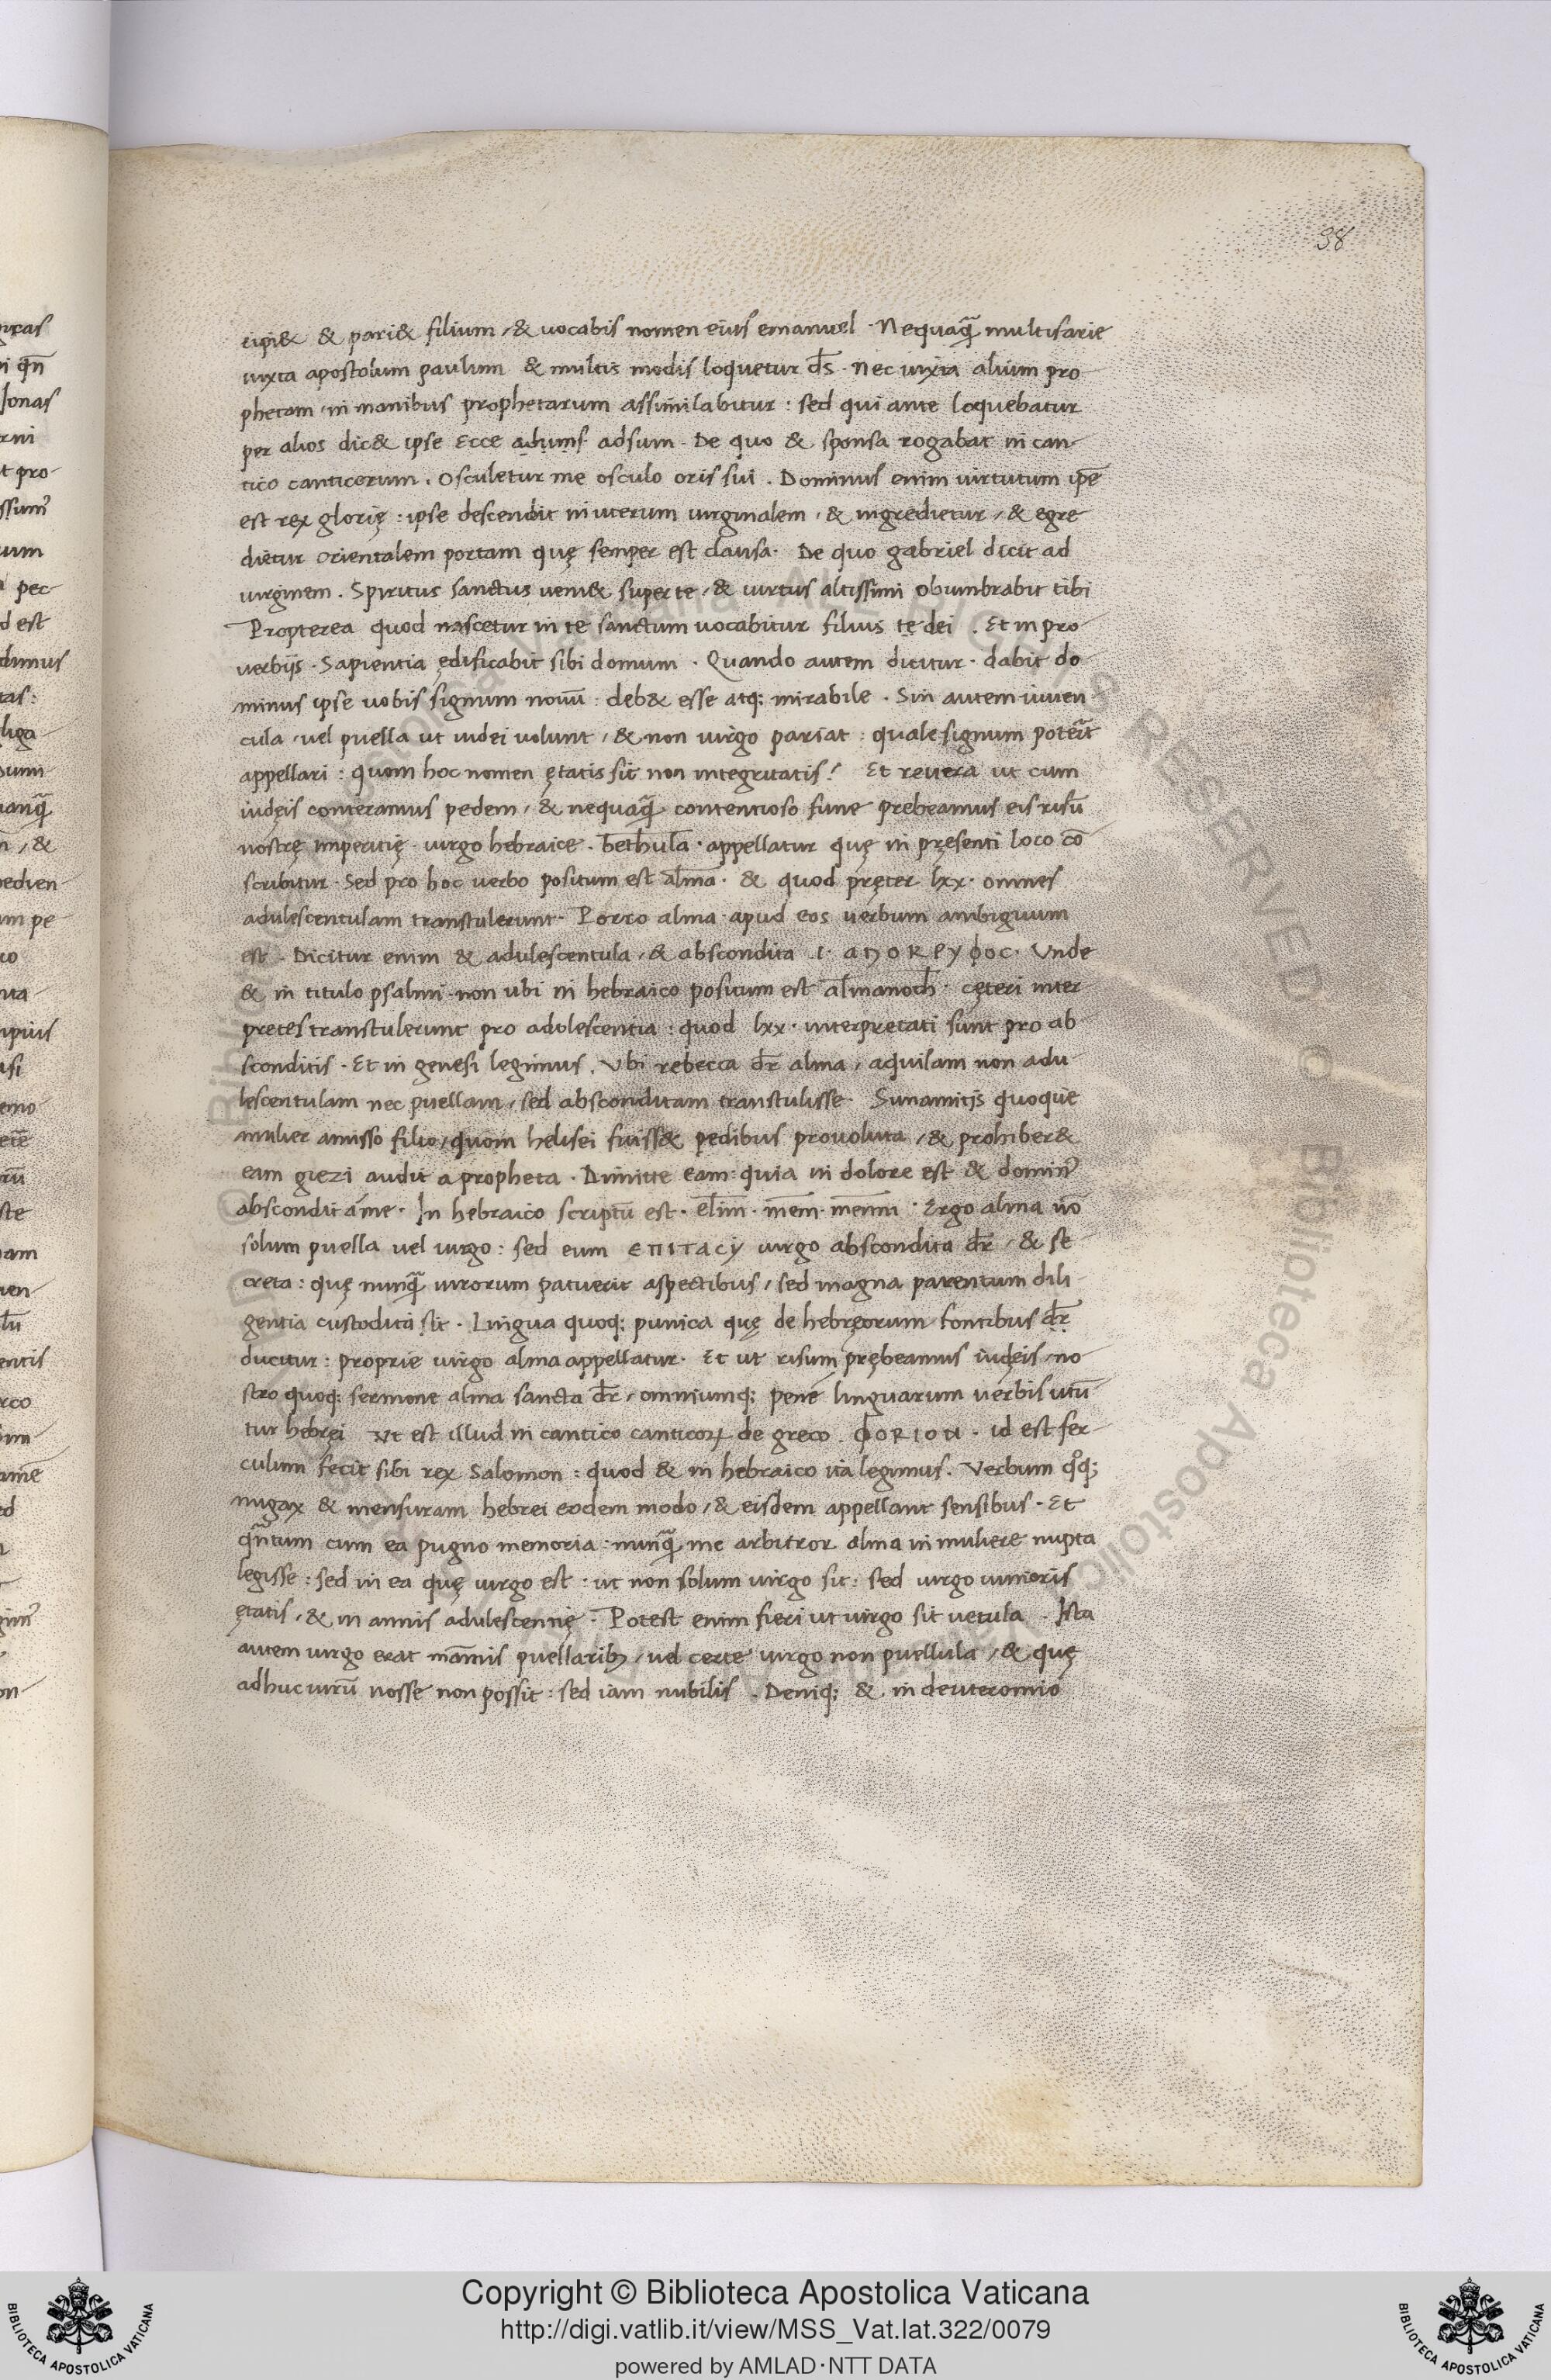 38
cipi& & pari& filium / & uocabis nomen eius emanuel · Nequaq̃ multifarie
iuxta apostolum paulum & multis modis loquetur d̅s · Nec iuxta alium pro-
phetam / in manibus prophetarum assimilabitur : sed qui ante loquebatur
per alios dic& ipse Ecce adumſ adsum · De quo & sponsa rogabat in can-
tico canticorum . Osculetur me osculo oris sui . Dominus enim uirtutum ip̅e
est rex glorię : ipse descendit in uterum uirginalem · & ingredietur / & egre
dietur orientalem portam quę semper est clausa · De quo gabriel dicit ad
uirginem . Spiritus sanctus ueni& super te / & uirtus altissimi obumbrabit tibi
Propterea quod nascetur in te sanctum uocabitur filius te dei . Et in pro-
verbijs · Sapientia ędificabit sibi domum · Quando autem dicitur · dabit do-
minus ipse uobis signum nouū : deb& esse atq; mirabile · Sin autem iuuen-
cula / uel puella ut iudei uolunt / & non uirgo pariat : quale signum poterit
appellari : quom hoc nomen ętatis sit non integritatis? Et reuera ut cum
iudęis conteramus pedem / & nequaq̃ contentioso fune prebeamus eis risū
nostrę imperitię · uirgo hebraice · bethula · appellatur quę in pręsenti loco cō
scribitur · Sed pro hoc uerbo positum est alma · & quod pręter lxx · omnes
adulescentulam transtulerunt · Porro alma · apud eos uerbum ambiguum
est · Dicitur enim & adulescentula / & abscondita .i. aποκρyφος · Vnde
& in titulo psalmi · non ubi in hebraico positum est almanoth · cęteri inter
pretes transtulerunt pro adolescentia : quod lxx · interpretati sunt pro ab
sconditis · Et in genesi legimus . Vbi rebecca dr̅ alma / aquilam non adu-
lescentulam nec puellam / sed absconditam transtulisse · Sunamitis quoque
mulier amisso filio / quom helisei fuiss& pedibus prouoluta / & prohiber&
eam giezi audit a propheta · Dimitte eam : quia in dolore est & domin᷒
abscondit a me · In hebraico scriptū est · elim · mem · memni · Ergo alma nō
solum puella uel uirgo : sed eum επιτaσy uirgo abscondita dr̅ / & se
creta : quę nunq̃ uirorum patuerit aspectibus / sed magna parentum dili-
gentia custodita sit · Lingua quoq; punica quę de hebręorum fontibus dr̅
ducitur : proprie uirgo alma appellatur · Et ut risum prębeamus iudęis / no
stro quoq; sermone alma sancta dr̅ / omniumq; pene linguarum uerbis utū
tur hebręi Vt est illud in cantico canticoꝝ de greco . φορiον · id est fer-
culum fecit sibi rex Salomon : quod & in hebraico ita legimus . Verbum qͦq;
nugax & mensuram hebrei eodem modo / & eisdem appellant sensibus · Et
qñtum cum ea pugno memoria : nunq̃ me arbitror alma in muliere nupta
legisse : sed in ea quę uirgo est : ut non solum uirgo sit : sed uirgo iunioris
ętatis / & in annis adulescentię · Potest enim fieri ut uirgo sit uetula . Ista
autem uirgo erat in annis puellarib; / uel certe uirgo non puellula / & quę
adhuc uirū nosse non possit : sed iam nubilis . Deniq; & in deuteronomio
Copyright © Biblioteca Apostolica Vaticana
http://digi.vatlib.it/view/MSS_Vat.lat.322/0079
powered by AMLAD·NTT DATA